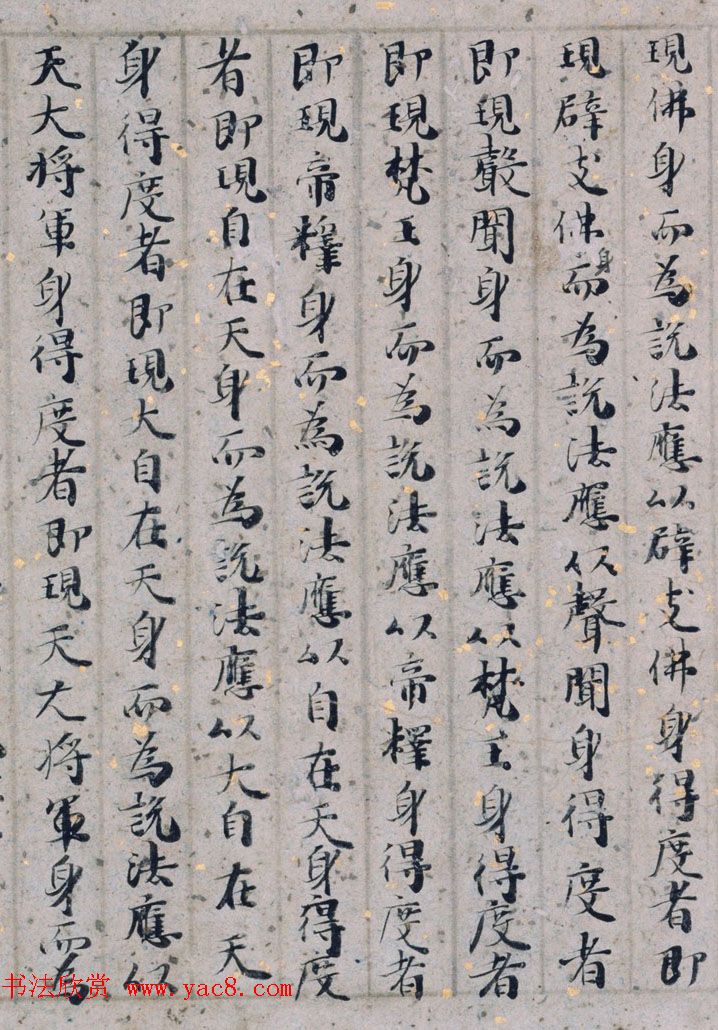 現佛身而為説法應以辟支佛身得度者即
現辟支佛身而為説法應以聲聞身得度者
即現聲聞身而為説法應以梵王身得度者
即現梵王身而為説法應以帝釋身得度者
即現帝釋身而為説法應以自在天身得度
者即現自在天身而為説法應以大自在天
身得度者即現大自在天身而為説法應以
天大将軍身得度者即現天大将軍身而為
书法欣赏 www.yac8.com